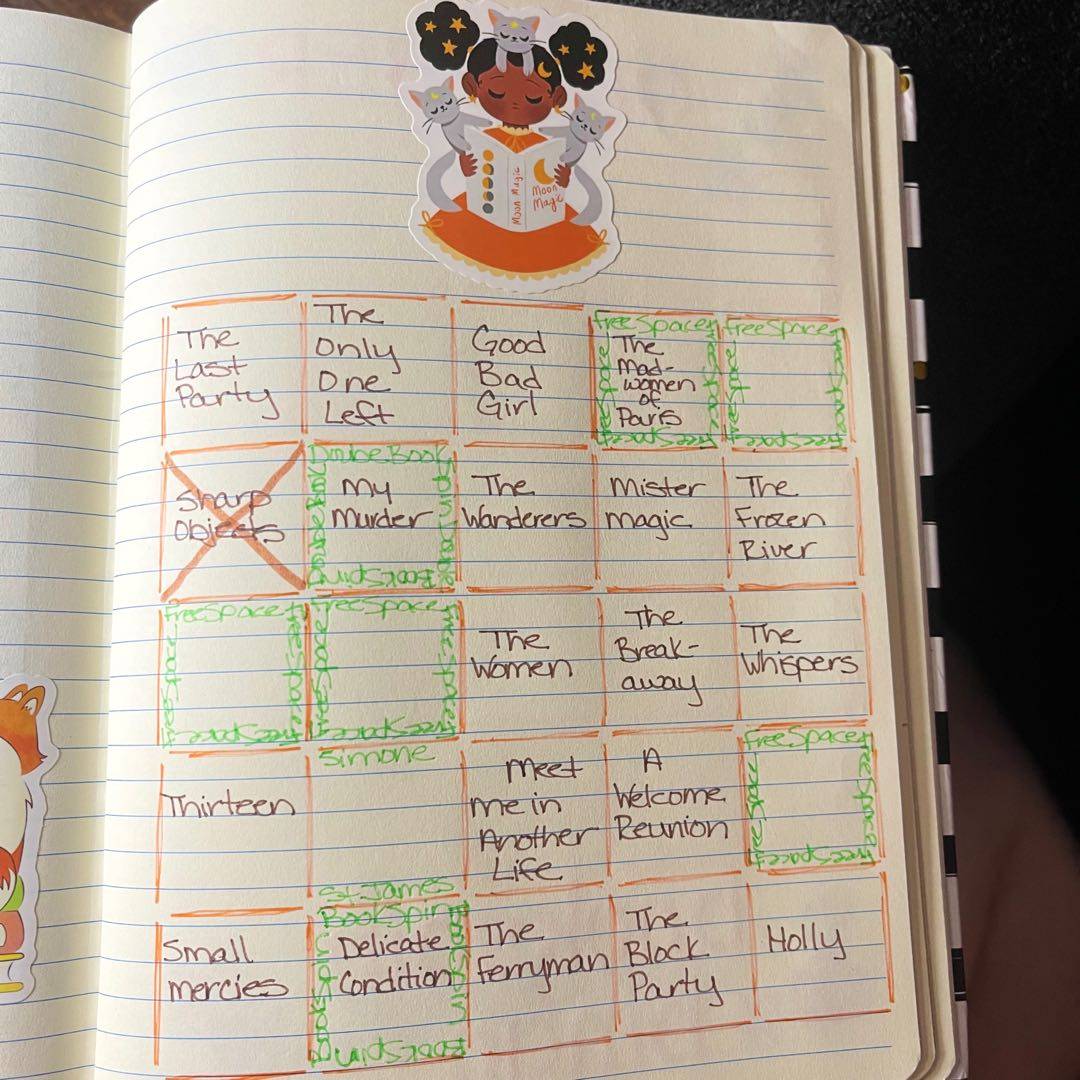 Moon Magic
Moon
Magic
The
Last
Party
The
Only
One
Left
Good
Bad
Girl
Free Space
Free Space
Free Space
Free Space
The
Mad-
women
of
Paris
Free Space
Free Space
Free Space
Free Space
Sharp
Objects
Double Book
My
Murder
The
Wanderers
Mister
Magic
The
Frozen
River
Free Space
Free Space
Free Space
Free Space
Free Space
Free Space
Free Space
Free Space
The
Women
The
Break-
away
The
Whispers
Thirteen
Simone
St. James
Meet
me in
Another
Life
A
Welcome
Reunion
Free Space
Free Space
Free Space
Free Space
Small
mercies
BookSpin
BookSpin
BookSpin
BookSpin
Delicate
Condition
The
Ferryman
The
Block
Party
Holly